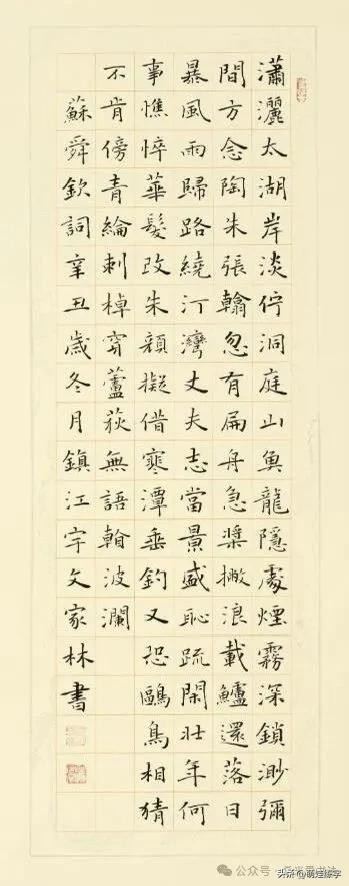 瀟灑太湖岸淡佇洞庭山魚龍隱處煙霧深鎖渺彌
間方念陶朱張翰忽有扁舟急槳撇浪載鱸還落日
暴風雨歸路繞汀灣丈夫志當景盛恥疏閑壯年何
事憔悴華髮改朱顏擬借寒潭垂釣又恐鷗鳥相猜
不肯傍青綸刺棹穿蘆荻無語看波瀾
蘇舜欽詞辛丑歲冬月鎮江宇文家林書
公众号
头条